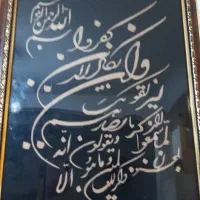 بسم الله الرحمن الرحيم
وان يكاد الذين كفروا
ليزلقونك بابصارهم
لما سمعوا الذكر
ويقولون انه لمجنون
وما هو الا